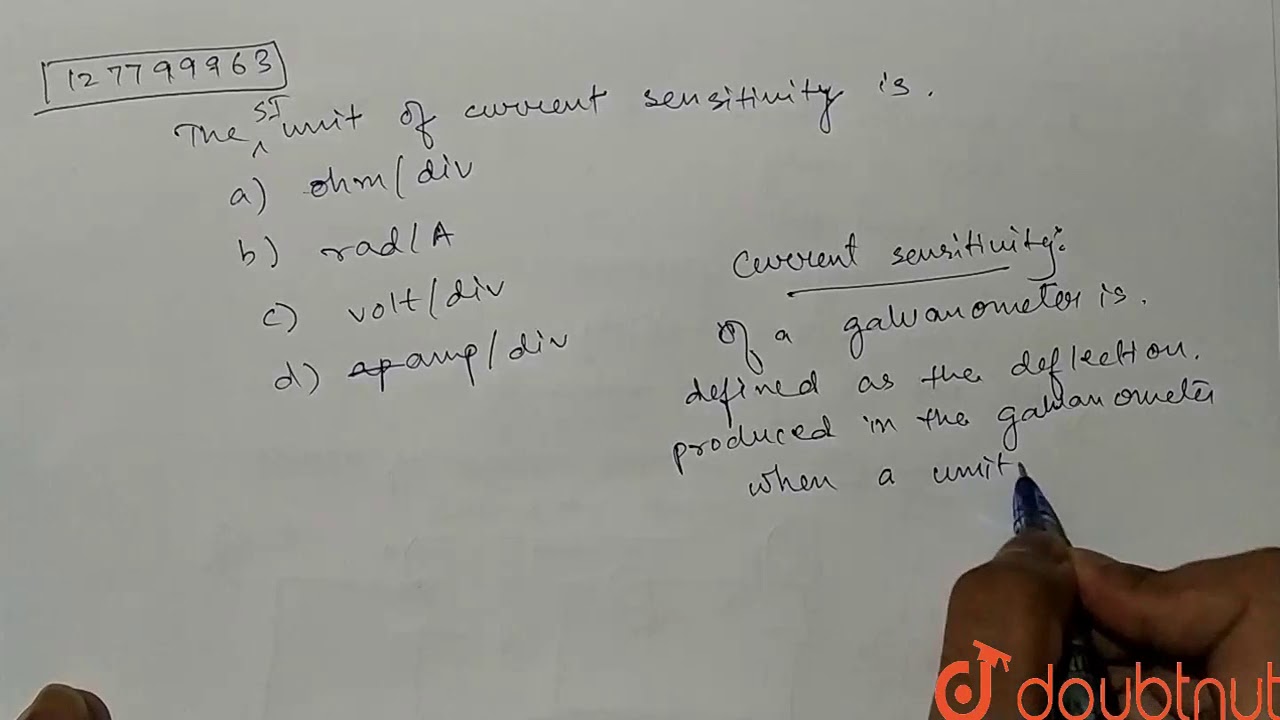 127799963
The SI unit of current sensitivity is.
a) ohm/div
b) rad/A
c) volt/div
d) amp/div
Current sensitivity:
of a galvanometer is.
defined as the deflection.
produced in the galvanometer
when a unit
doubtnut